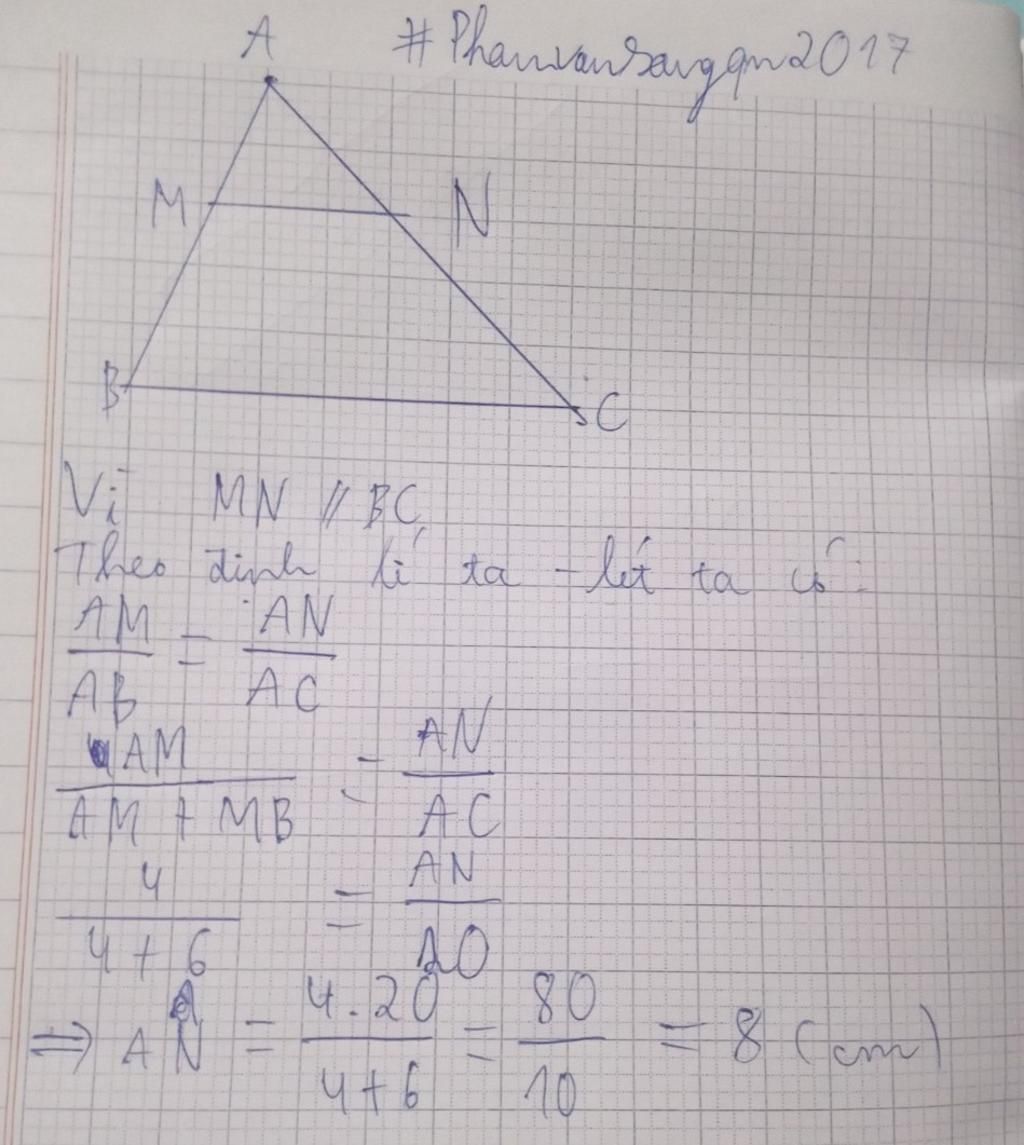 A #Phanvansangqn2017
M N
B C
Vì MN // BC
Theo định lí ta - lét ta có:
AM/AB = AN/AC
AM/AM + MB = AN/AC
4/4 + 6 = AN/20
=> AN = 4.20/4+6 = 80/10 = 8 (cm)